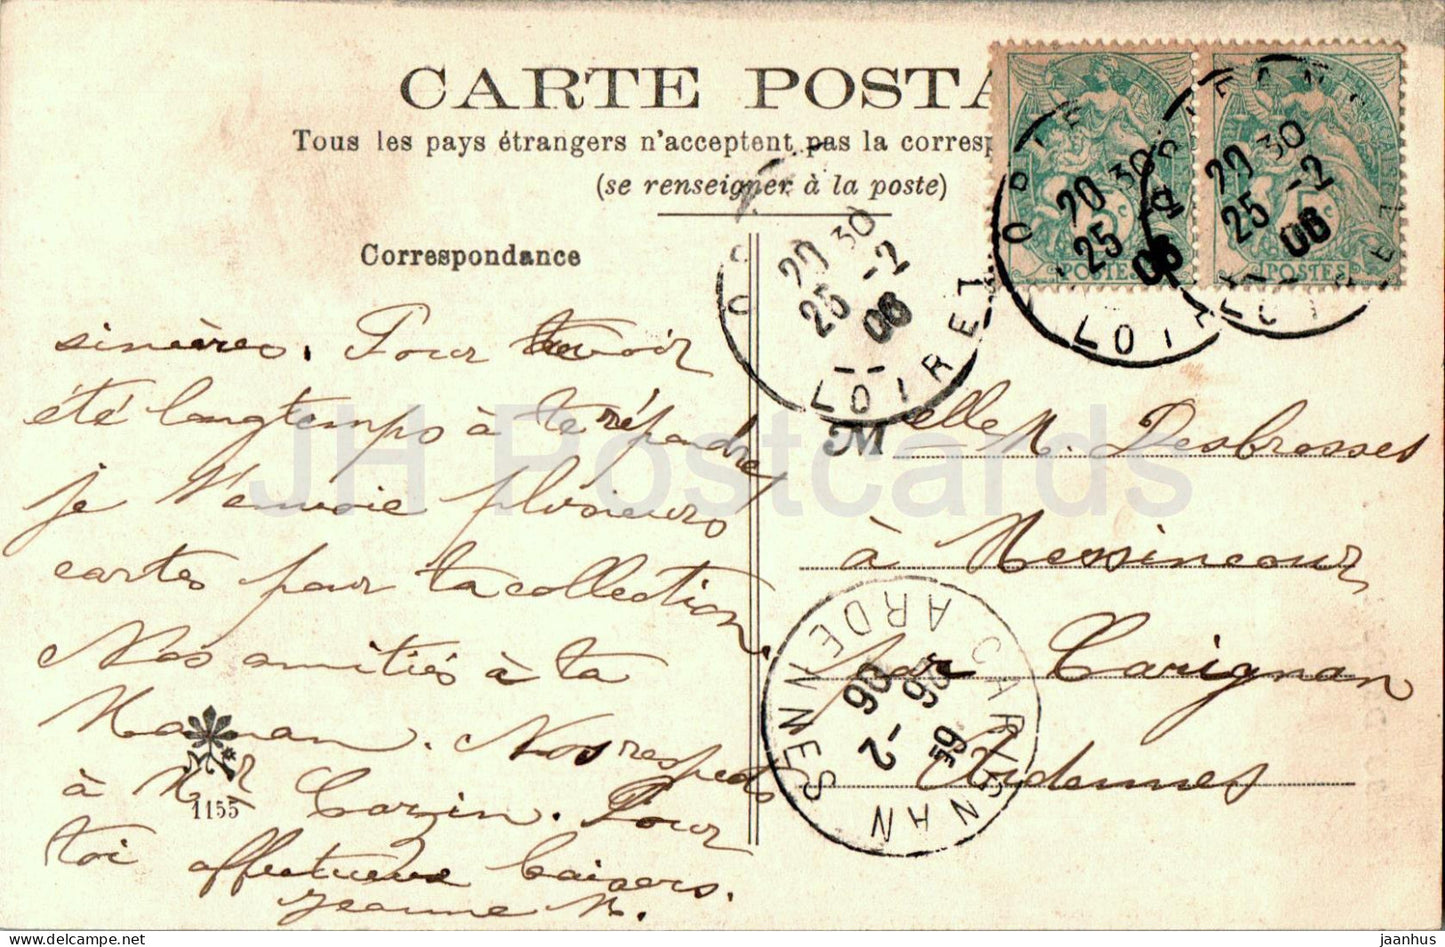 CARTE POSTA
Tous les pays étrangers n'acceptent pas la corresp
(se renseigner à la poste)
Correspondance
sincères. Pour t'avoir
été longtemps à te répondre
je t'envoie plusieurs
cartes pour ta collection.
Nos amitiés à ta
Maman. Nos respects
à Mr Cozin. Pour
toi affectueux baisers.
Jeanne N.
1155
Melle M. Desbrosses
à Messincour
par Carignan
Ardennes
20 30
25 -2
06
LOIRET
20 30
25 -2
06
LOIRET
20 30
25 -2
06
LOIRET
5c
POSTES
POSTES
CARIGNAN
ARDENNES
26 -2
06
JH Postcards
delcampe.net
jaanhus